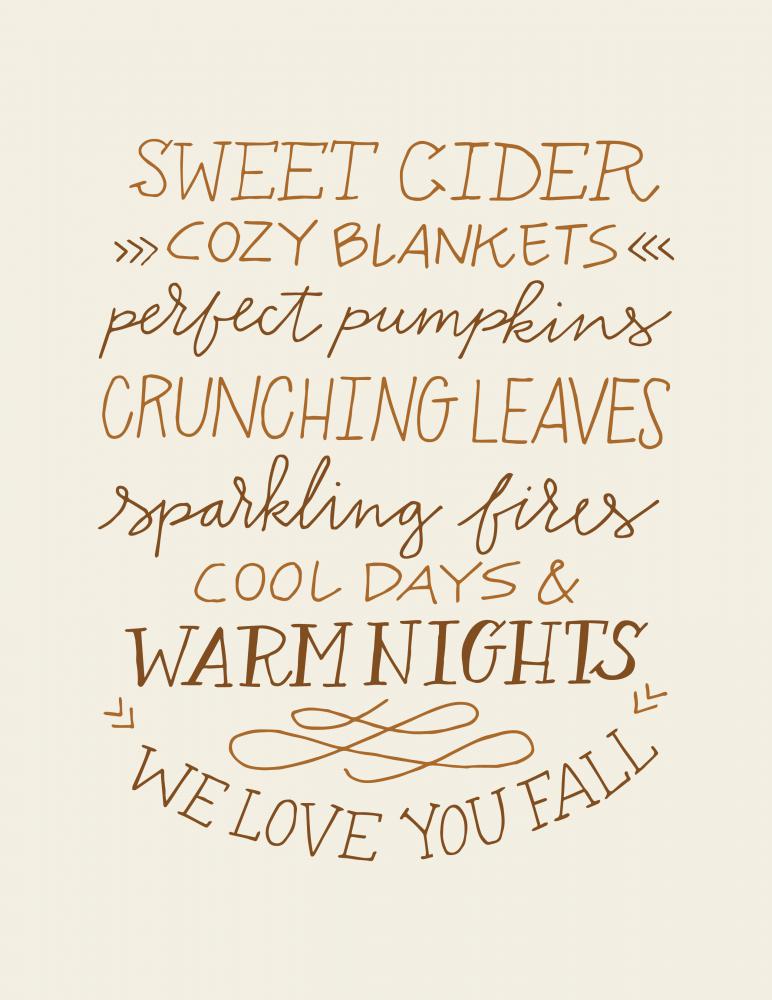 SWEET CIDER
COZY BLANKETS
perfect pumpkins
CRUNCHING LEAVES
sparkling fires
COOL DAYS &
WARM NIGHTS
WE LOVE YOU FALL